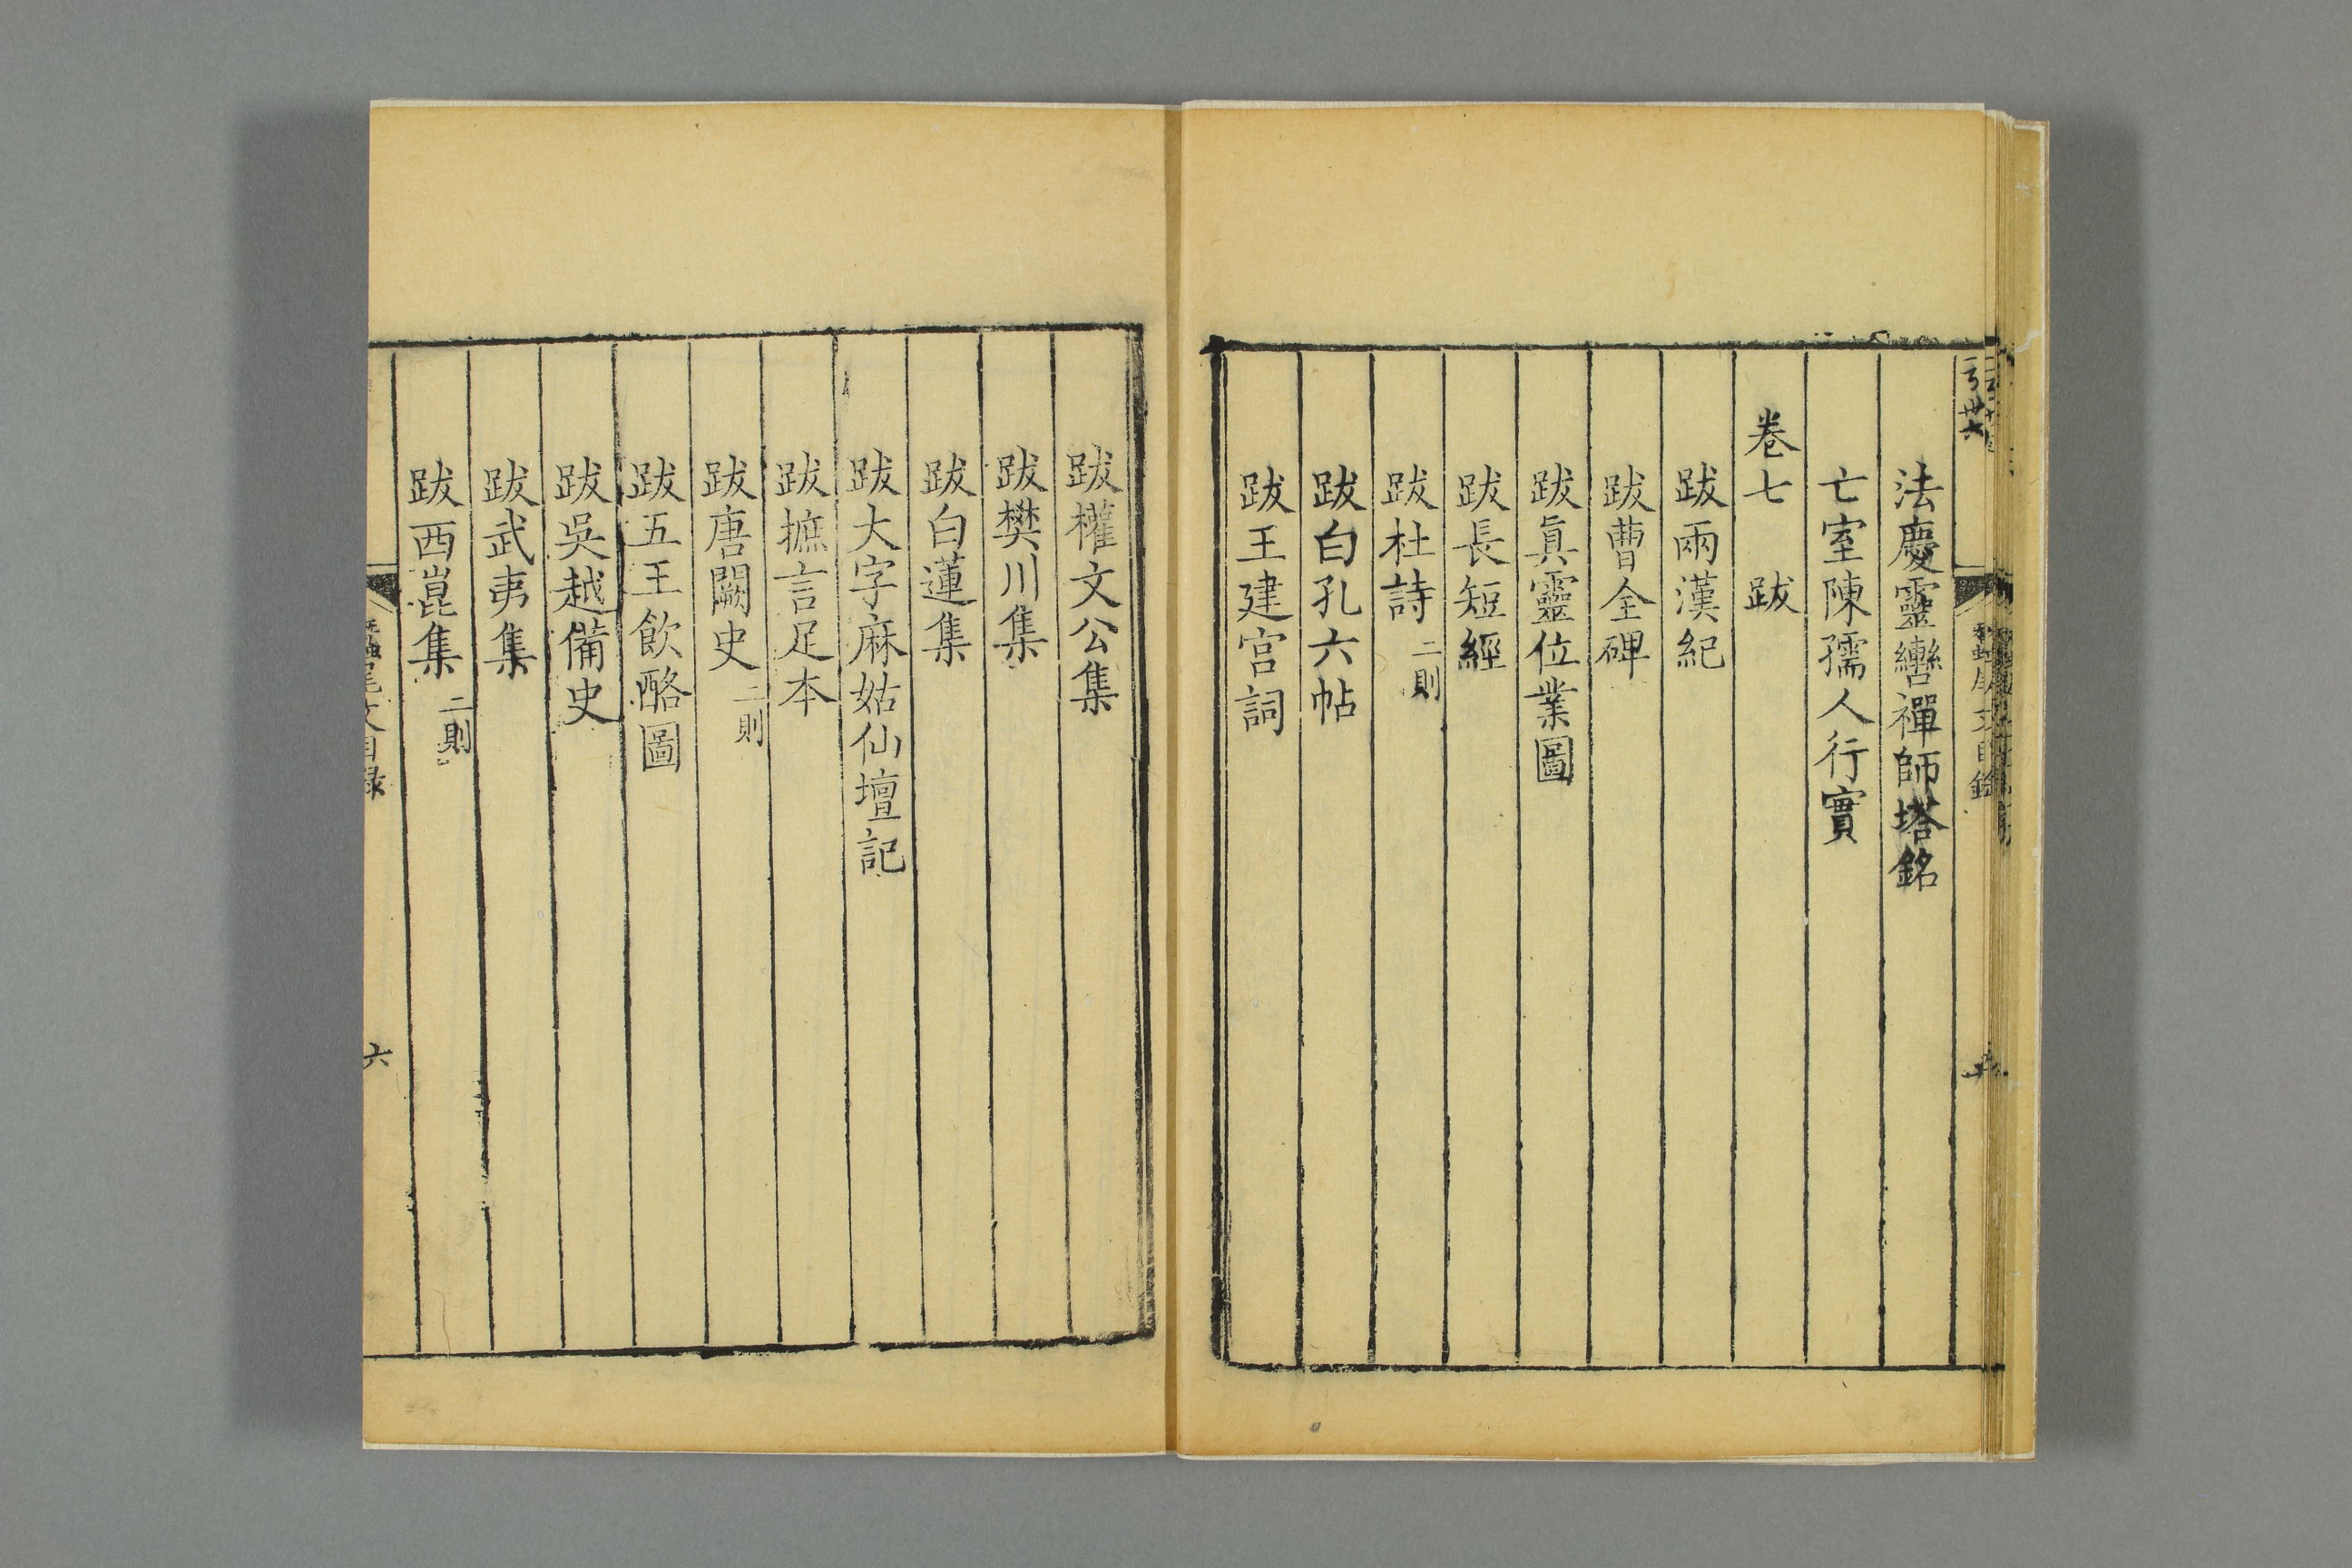 法慶靈轡禪師塔銘
亡室陳孺人行實
卷七　跋
跋兩漢紀
跋曹全碑
跋眞靈位業圖
跋長短經
跋杜詩二則
跋白孔六帖
跋王建宫詞
跋權文公集
跋樊川集
跋白蓮集
跋大字麻姑仙壇記
跋摭言足本
跋唐闕史二則
跋五王飲酪圖
跋吳越備史
跋武夷集
跋西崑集二則
尾文目録
六